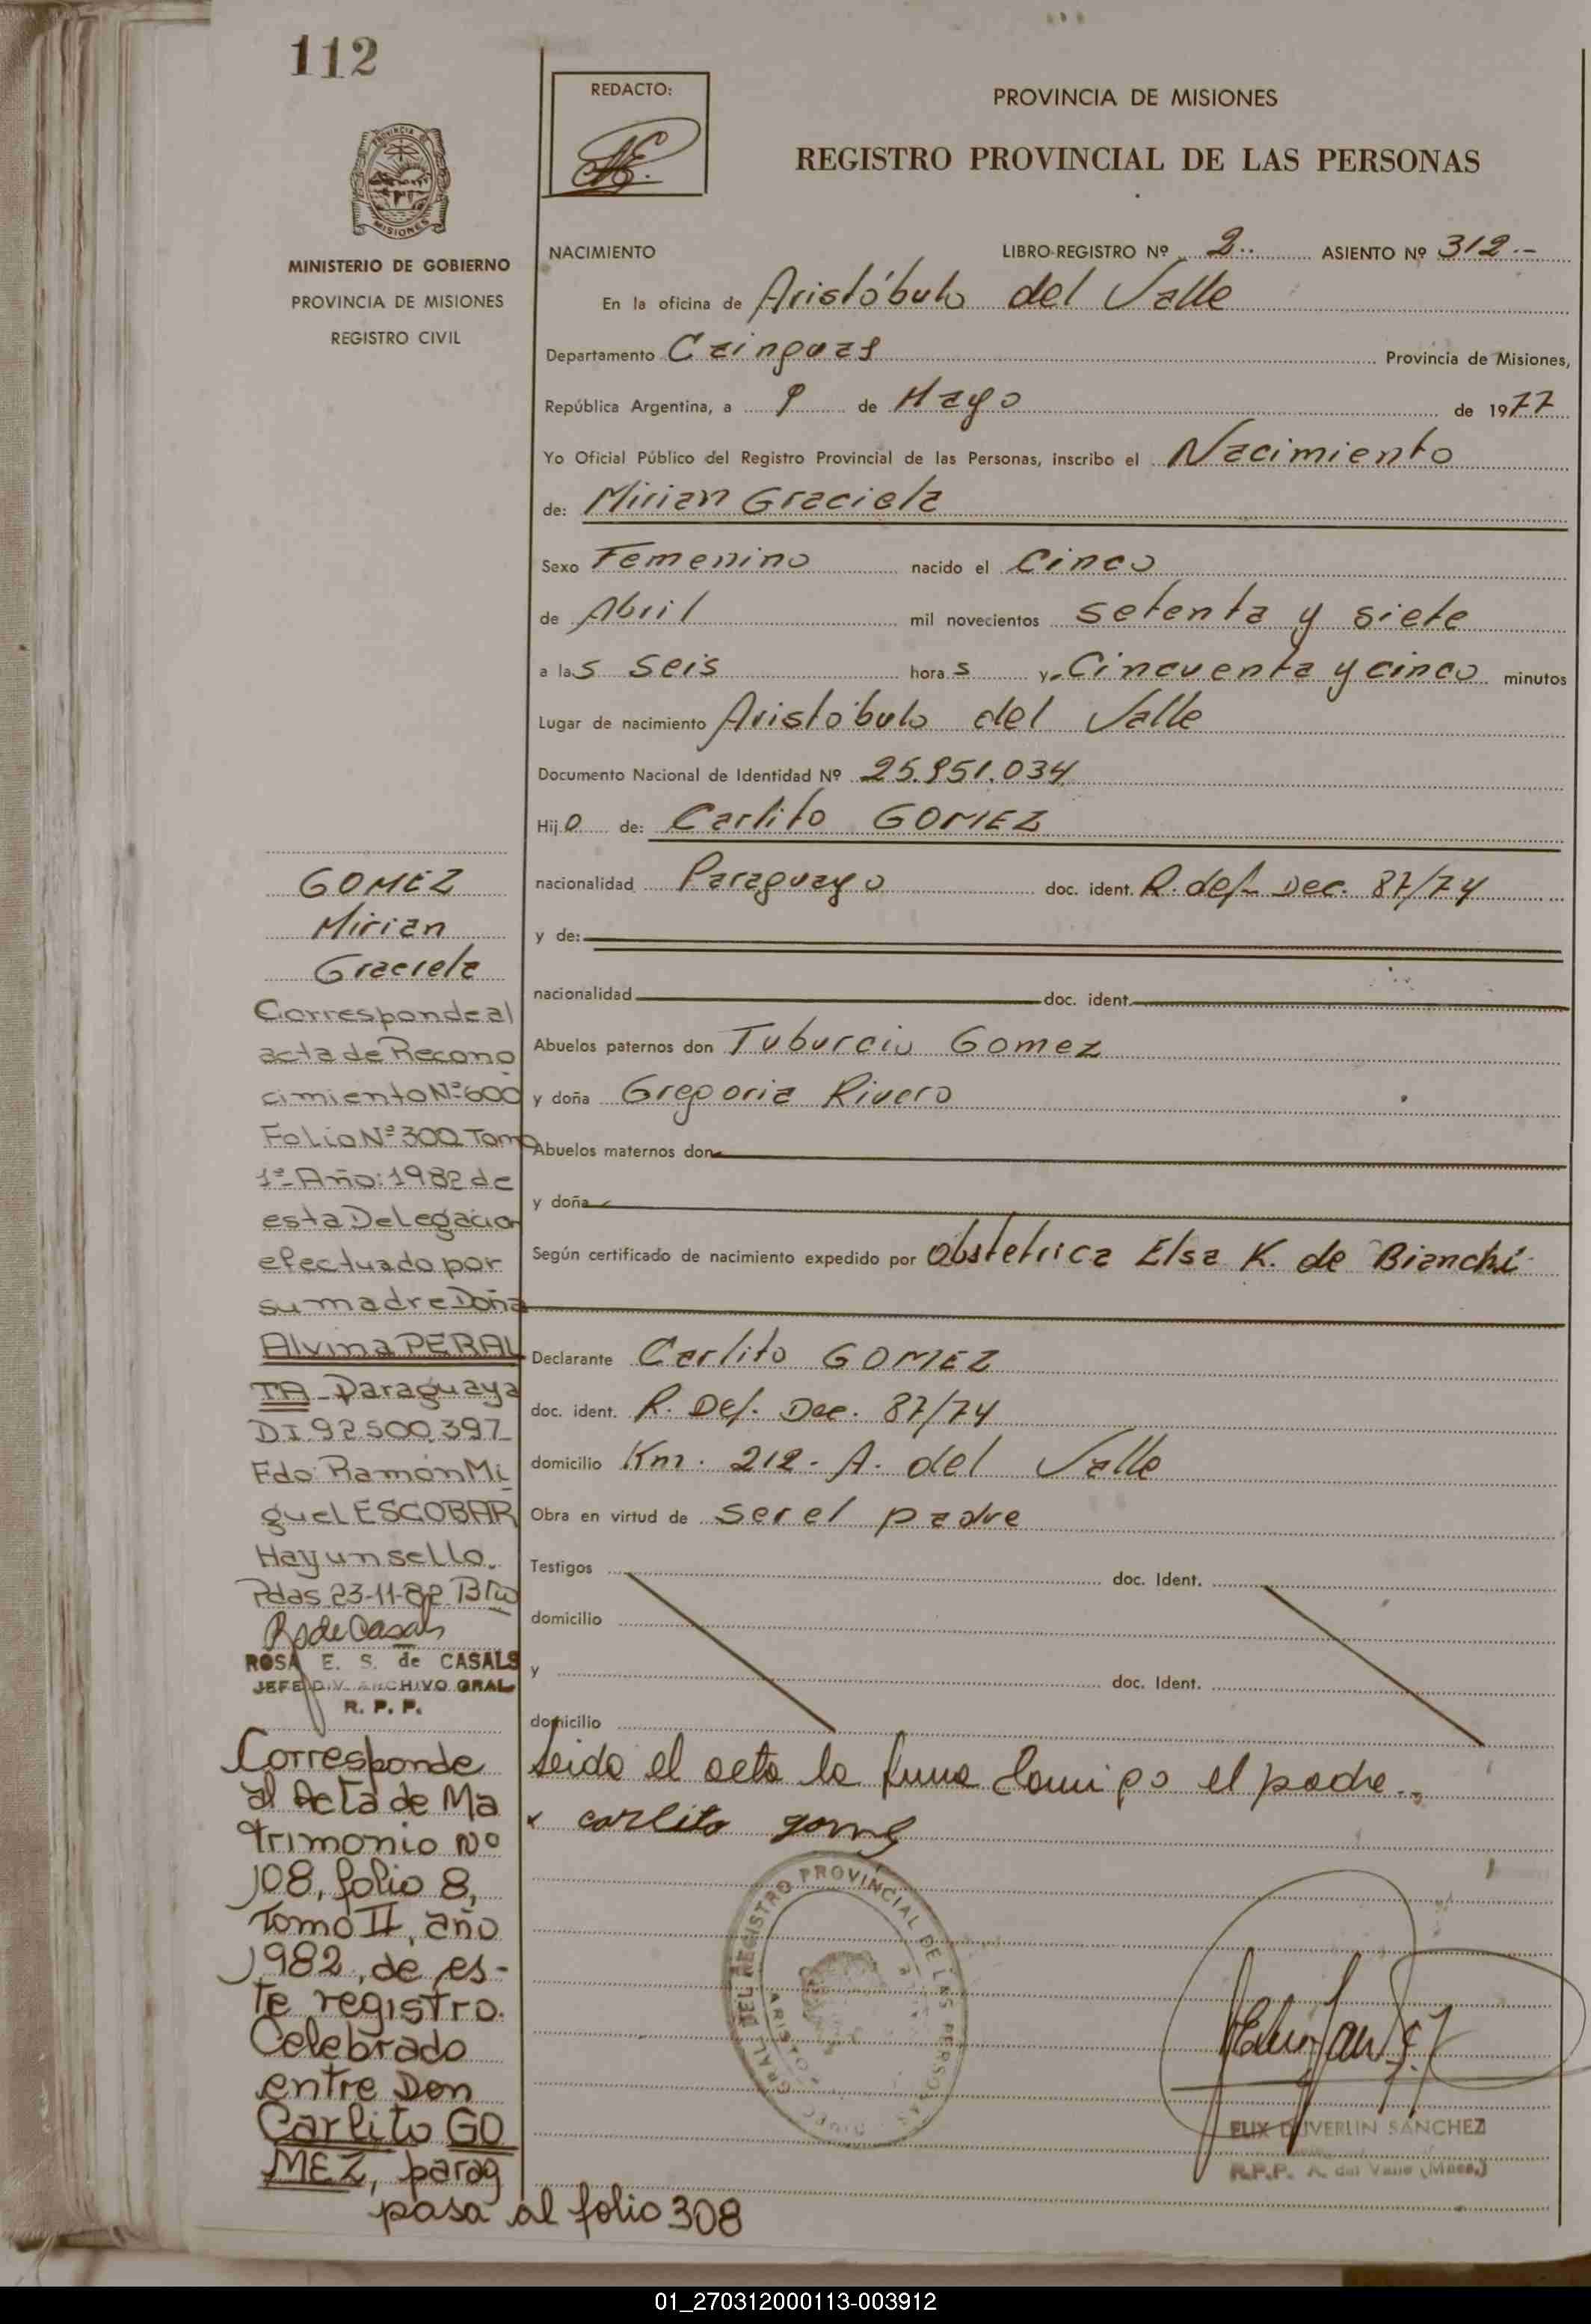 112
REDACTO:
PROVINCIA DE MISIONES
REGISTRO PROVINCIAL DE LAS PERSONAS
PROVINCIA DE
MISIONES
MINISTERIO DE GOBIERNO
PROVINCIA DE MISIONES
REGISTRO CIVIL
NACIMIENTO LIBRO-REGISTRO Nº 2.. ASIENTO Nº 312.-
En la oficina de Aristóbulo del Valle
Departamento Cainguas Provincia de Misiones,
República Argentina, a 9 de Mayo de 1977
Yo Oficial Público del Registro Provincial de las Personas, inscribo el Nacimiento
de: Mirian Graciela
Sexo Femenino nacido el Cinco
de Abril mil novecientos setenta y siete
a las seis horas y Cincuenta y cinco minutos
Lugar de nacimiento Aristóbulo del Valle
Documento Nacional de Identidad Nº 25.951.034
Hijo de: Carlito GOMEZ
nacionalidad Paraguayo doc. ident. R. def. Dec. 87/74
y de:
nacionalidad doc. ident.
Abuelos paternos don Tuburcio Gomez
y doña Gregoria Rivero
Abuelos maternos don
y doña
Según certificado de nacimiento expedido por Obstetrica Elsa K. de Bianchi
Declarante Carlito GOMEZ
doc. ident. R. Def. Dec. 87/74
domicilio Km. 212- A. del Valle
Obra en virtud de ser el padre
Testigos doc. Ident.
domicilio
y doc. Ident.
domicilio
Leida el acta la firma conmigo el padre..
x carlito gomez
GOMEZ
Mirian
Graciela
Corresponde al
acta de Recono
cimiento Nº 600
Folio Nº 300 Tomo
1º- Año: 1982 de
esta Delegacion
efectuado por
su madre Doña
Alvina PERAL
TA - Paraguaya
D.I. 92.500.397
Fdo: Ramón Mi
guel ESCOBAR
Hay un sello.
Pdas 23-11-82
ROSA E. S. de CASALS
JEFE DIV. ARCHIVO GRAL.
R. P. P.
Corresponde
al Acta de Ma
trimonio Nº
108, folio 8,
Tomo II, año
1982, de es-
te registro.
Celebrado
entre Don
Carlito GO
MEZ, parag
pasa al folio 308
REGISTRO PROVINCIAL DE LAS PERSONAS
FELIX DUVERLIN SANCHEZ
R.P.P. A. del Valle (Mnes.)
01_270312000113-003912